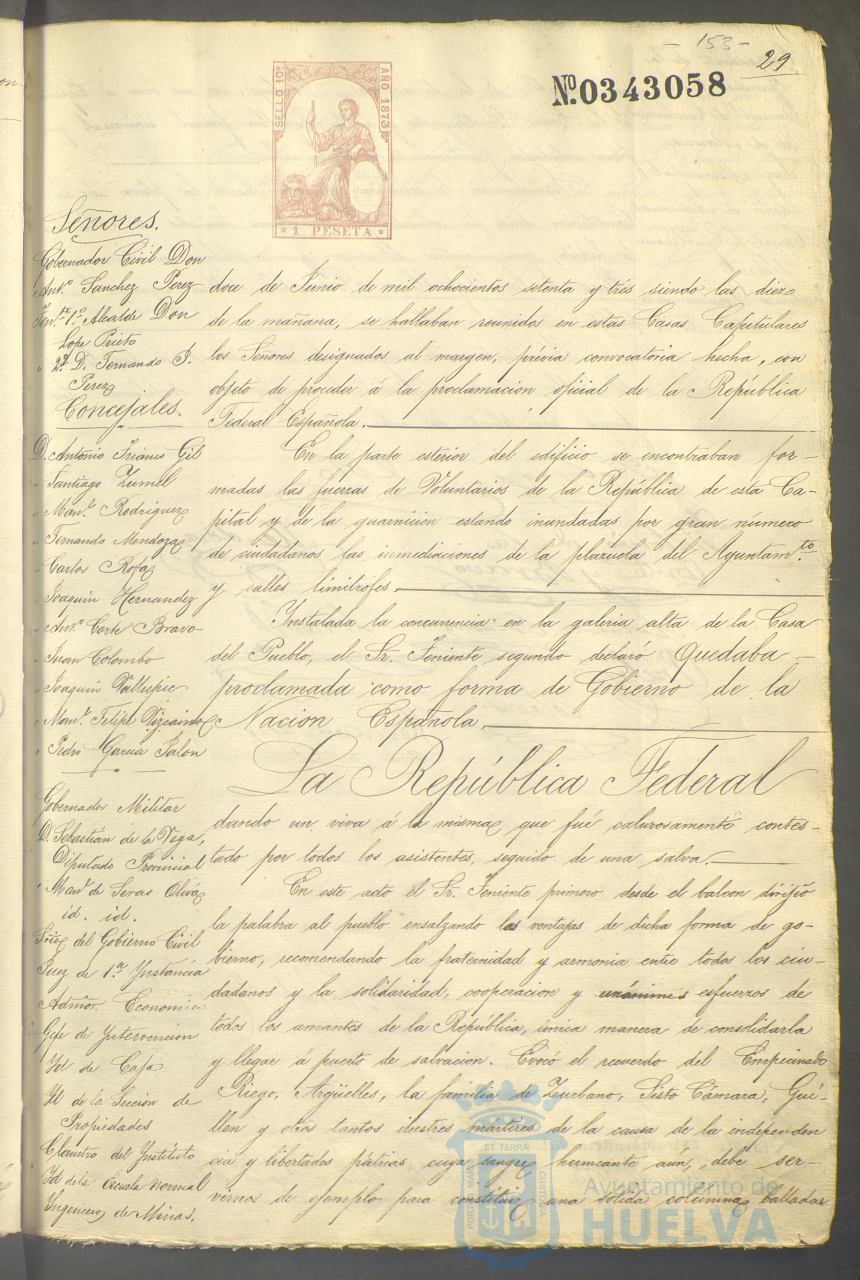 - 153 -
29
Nº 0343058
SELLO 10º
AÑO 1873
1 PESETA
Señores.
Gobernador Civil Don
Antº Sanchez Perez
Tente 1º Alcalde Don
Lope Prieto
" 2º D. Fernando P.
Perez
Concejales.
D. Antonio Trianes Gil
" Santiago Zumel
" Manl Rodriguez
" Fernando Mendoza
" Carlos Rofa
" Joaquin Hernandez
" Antº Corte Bravo
" Juan Colombo
" Joaquin Vallespic
" Manl Felipe Vizcaino
" Pedro Garcia Jalon
Gobernador Militar
D. Sebastian de la Vega,
Diputado Provincial
" Manl de Seras Oliva
id. id.
Srio del Gobierno Civil
Juez de 1ª Ynstancia
Admor Economico
Gefe de Yntervencion
Yd de Caja
Yd de la Seccion de
Propiedades
Claustro del Ynstituto
Yd de la Escuela Normal
Yngeniero de Minas.
doce de Junio de mil ochocientos setenta y tres siendo las diez
de la mañana, se hallaban reunidos en estas Casas Capitulares
los Señores designados al margen, prévia convocatoria hecha, con
objeto de proceder á la proclamacion oficial de la República
Federal Española.
En la parte esterior del edificio se encontraban for-
madas las fuerzas de Voluntarios de la República de esta Ca-
pital y de la guarnicion estando inundadas por gran número
de ciudadanos las inmediaciones de la plazuela del Ayuntamto
y calles limitrofes.
Instalada la concurrencia en la galeria alta de la Casa
del Pueblo, el Sr. Teniente segundo declaró quedaba
proclamada como forma de Gobierno de la
Nacion Española,
La República Federal
dando un viva á la misma que fué calurosamente contes-
tado por todos los asistentes, seguido de una salva.
En este acto el Sr. Teniente primero desde el balcon dirijió
la palabra al pueblo ensalzando las ventajas de dicha forma de go-
bierno, recomendando la fraternidad y armonia entre todos los ciu-
dadanos y la solidaridad, cooperacion y unánimes esfuerzos de
todos los amantes de la República, única manera de consolidarla
y llegar á puerto de salvacion. Evocó el recuerdo del Empecinado
Riego, Argüelles, la familia de Zurbano, Sisto Cámara, Gui-
llen y otros tantos ilustres mártires de la causa de la independen
cia y libertades pátrias, cuya sangre humeante aún, debe ser-
virnos de ejemplo para constituir una sólida columna balladar
Ayuntamiento de
HUELVA